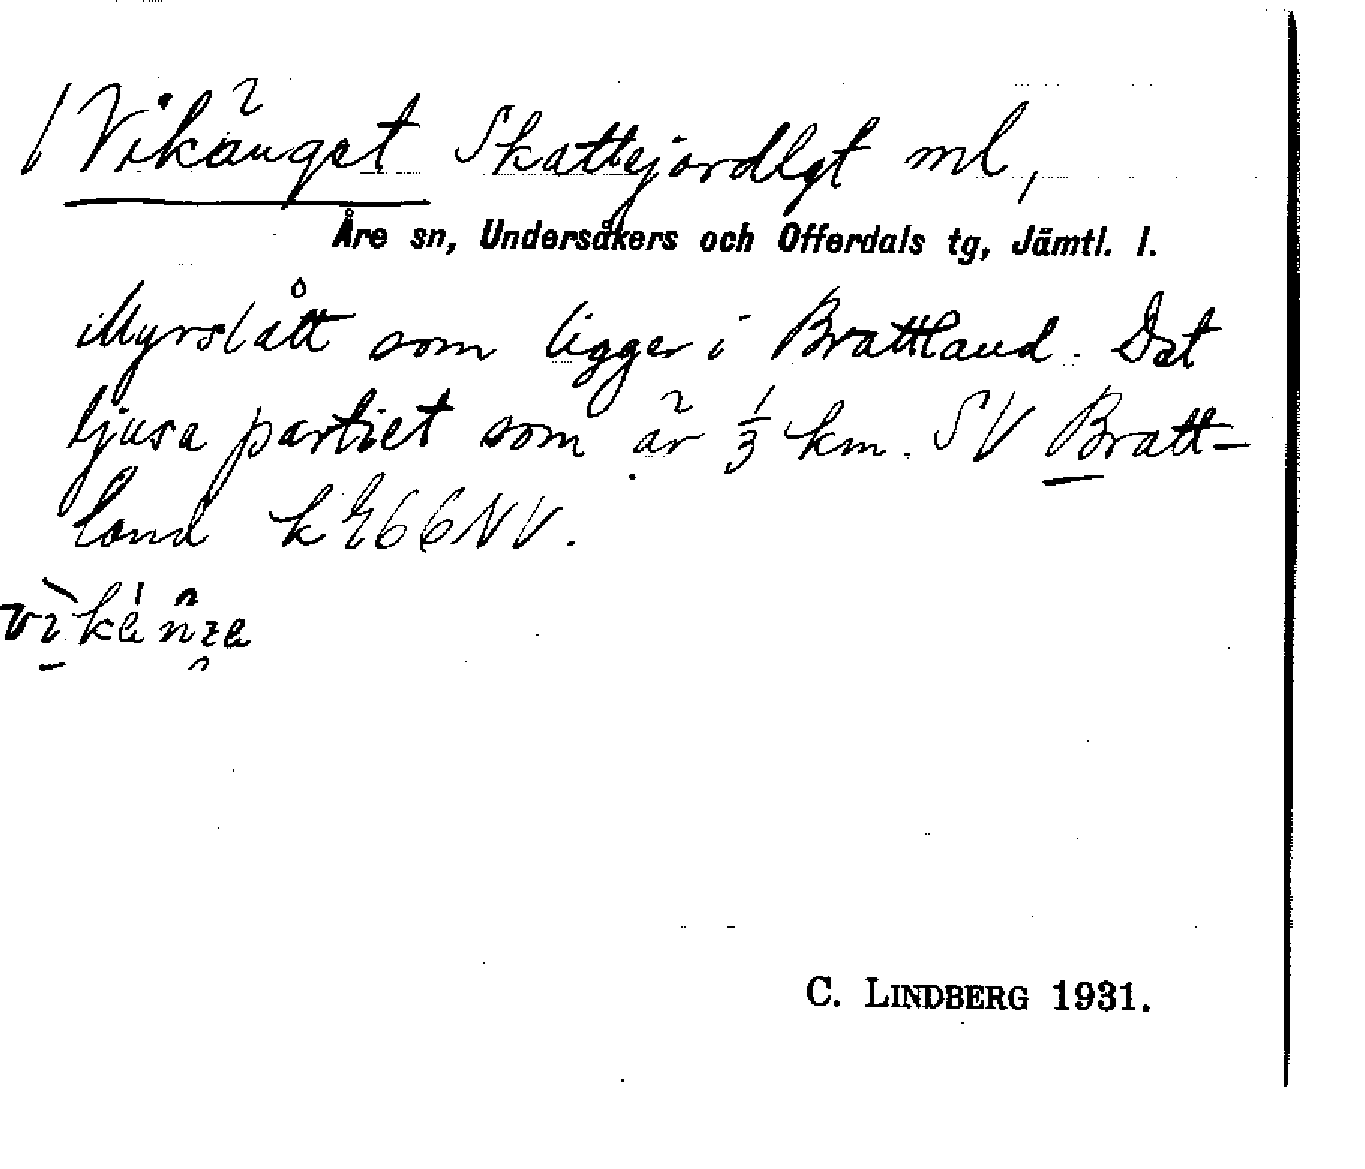 / Vikänget Skattejordlgt ml,
Åre sn, Undersåkers och Offerdals tg, Jämtl. l.
Myrslått som ligger i Brattland. Det
ljusa partiet som är 1/3 km. SV Bratt-
land k E66NV.
C. LINDBERG 1931.